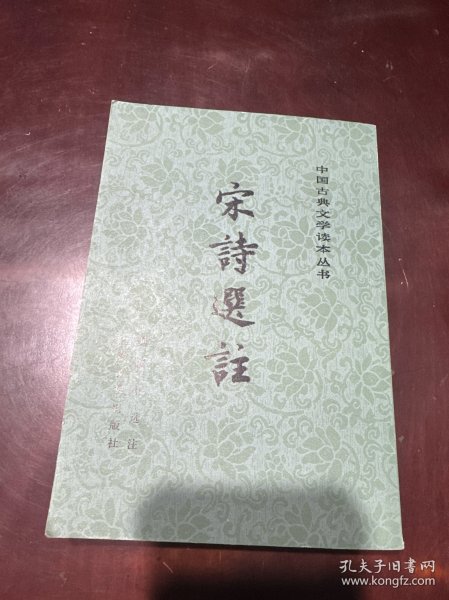 中国古典文学读本丛书
宋詩選註
选注
出版社
孔夫子旧书网
www.kongfz.com